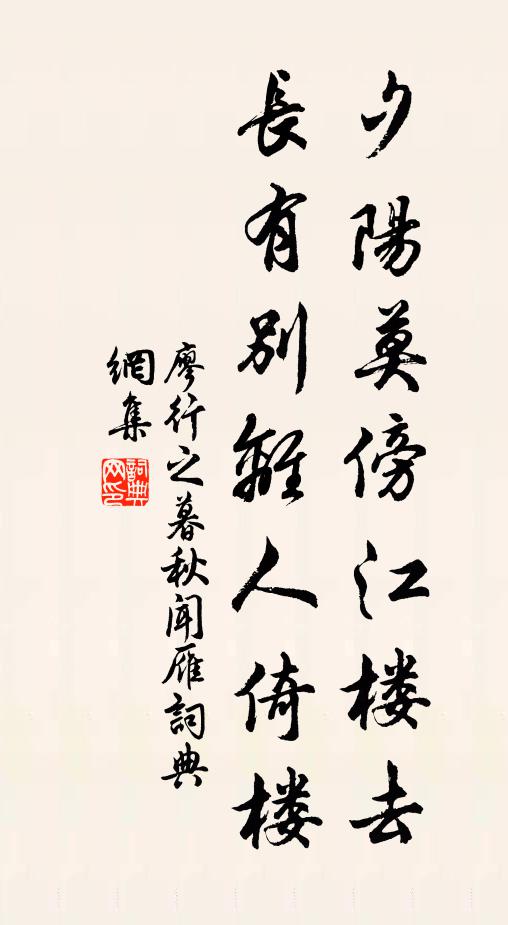 夕陽莫傍江楼去
長有別離人倚楼
廖行之暮秋聞雁詞典
網集
詞典網印